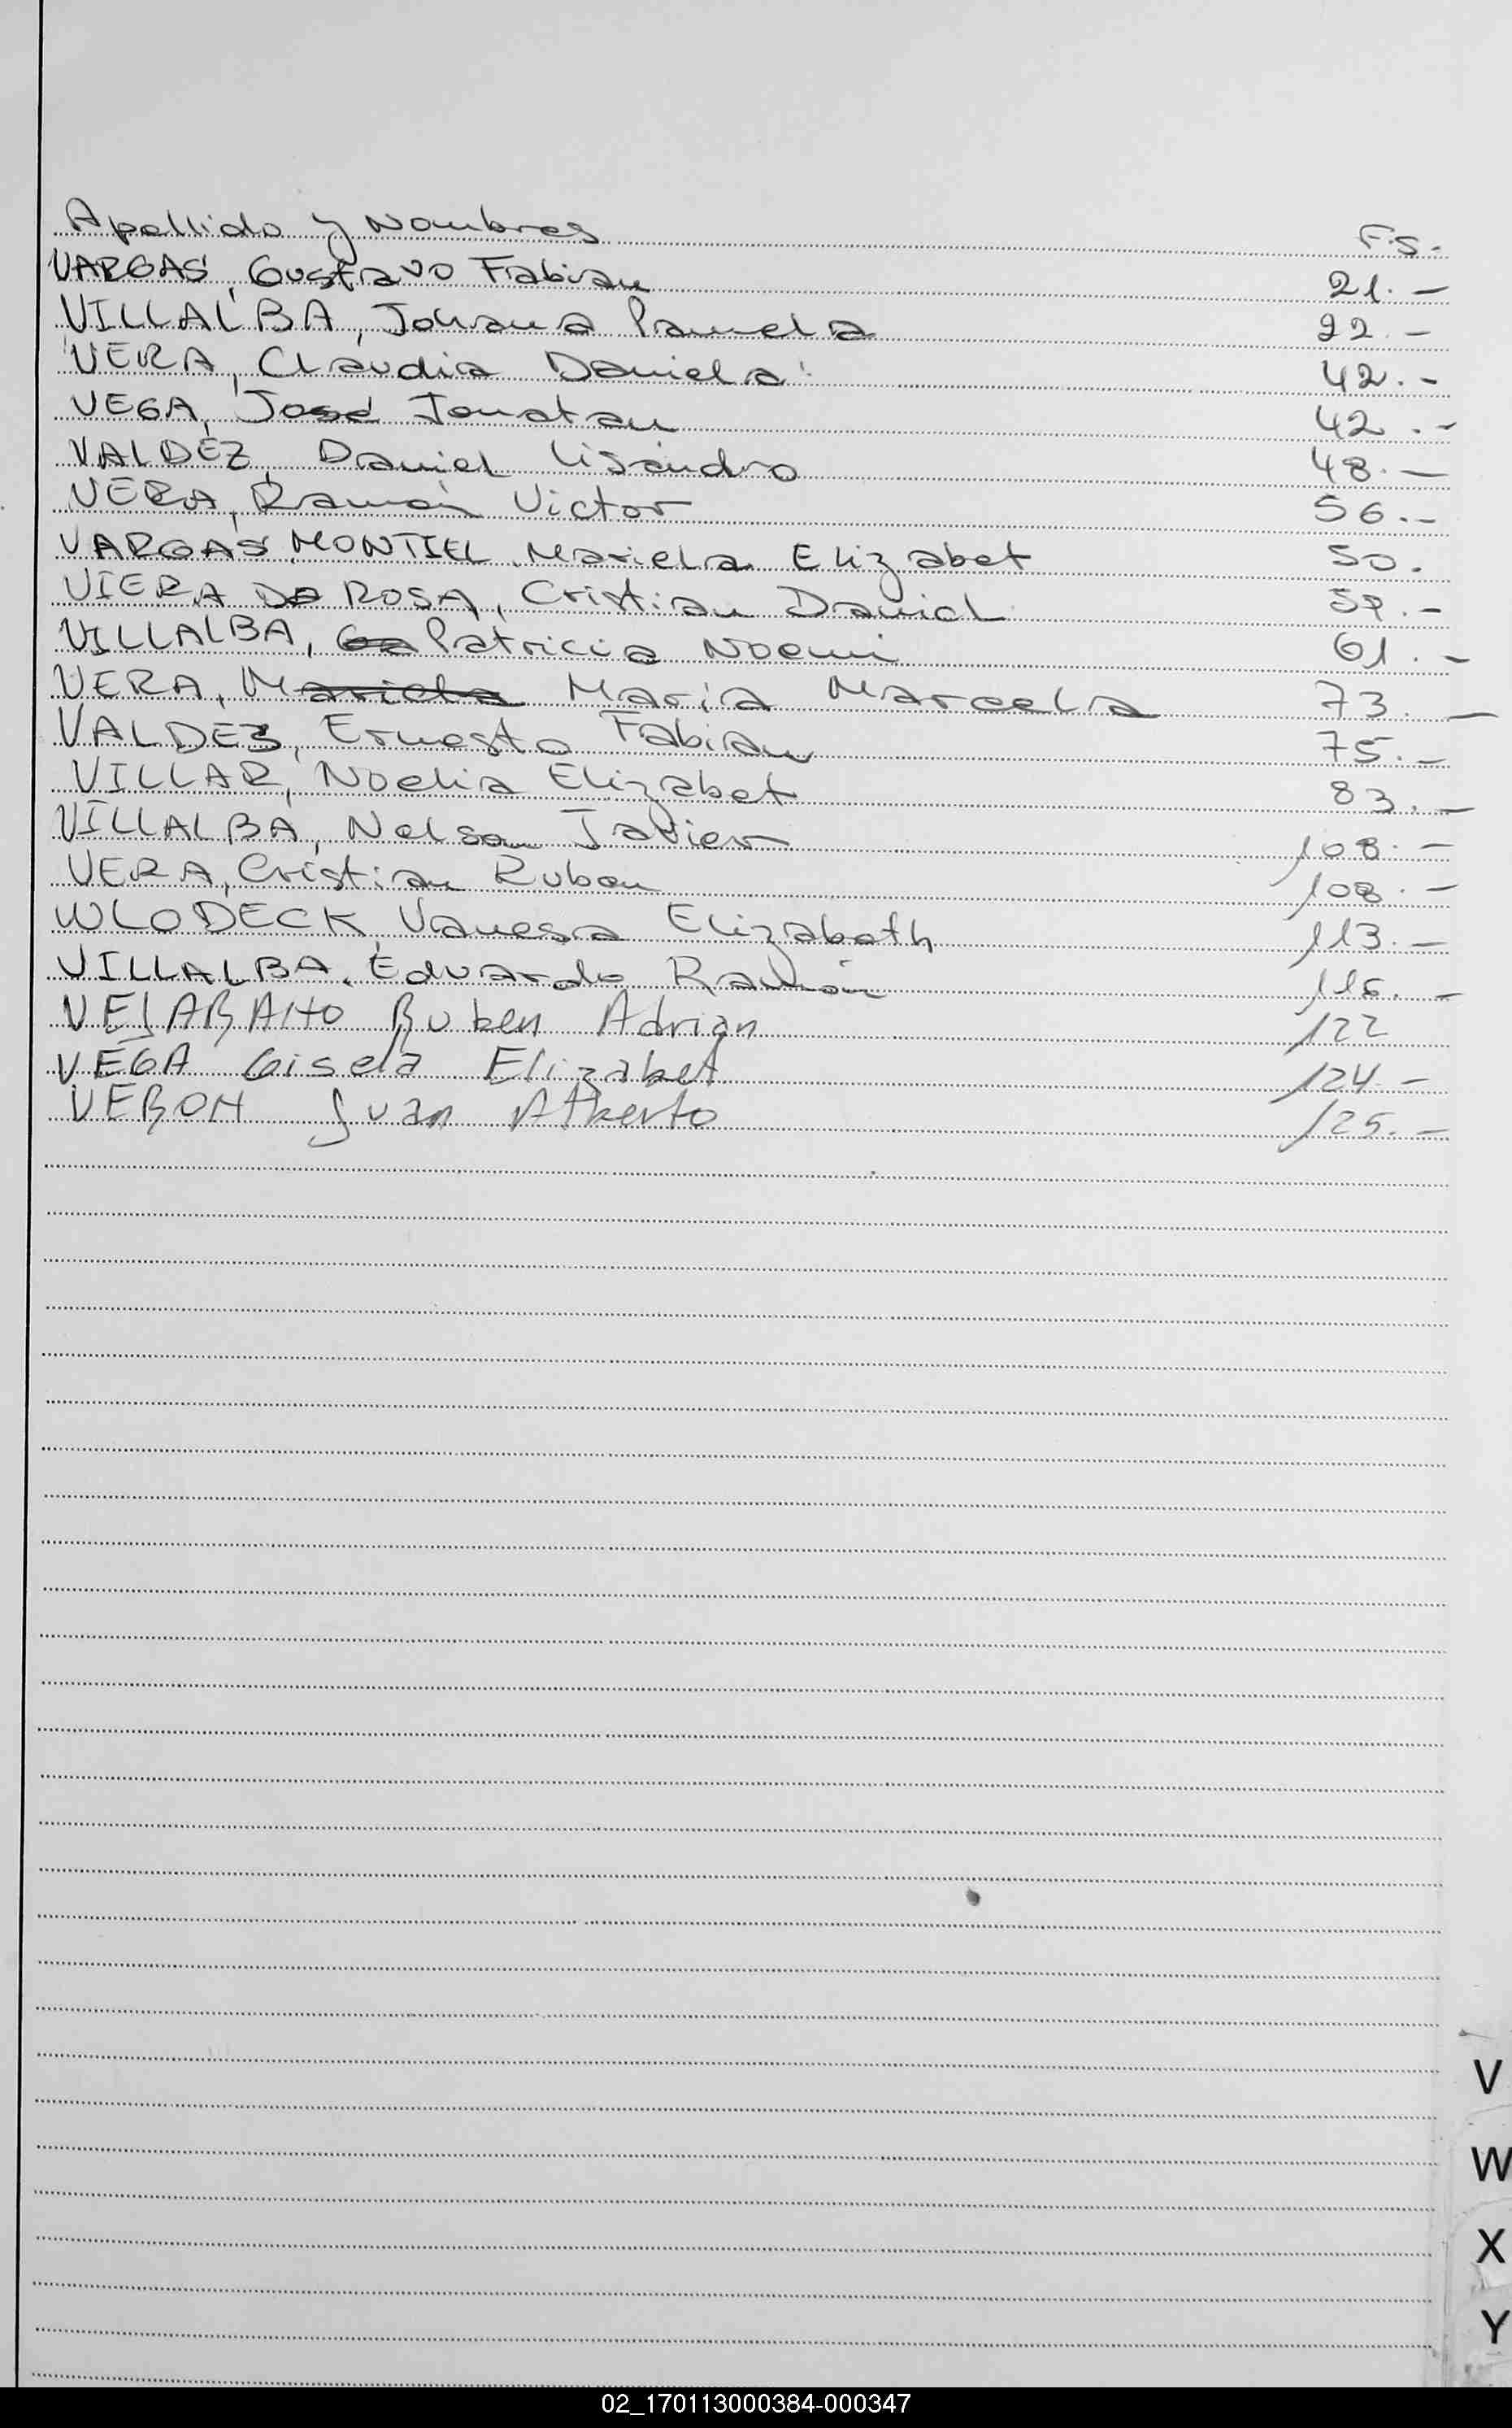 Apellido y Nombres F.S.
VARGAS, Gustavo Fabian 21.-
VILLALBA, Johana Pamela 22.-
VERA, Claudia Daniela 42.-
VEGA, José Jonatan 42.-
VALDÉZ, Daniel Lisandro 48.-
VERA, Ramón Victor 56.-
VARGAS MONTIEL, Mariela Elizabet 50.
VIERA DA ROSA, Cristian Daniel 59.-
VILLALBA, Patricia Noemi 61.-
VERA, Mariela María Marcela 73.-
VALDEZ, Ernesto Fabian 75.-
VILLAR, Noelia Elizabet 83.-
VILLALBA, Nelson Javier 108.-
VERA, Cristian Ruben 108.-
WLODECK, Vanessa Elizabeth 113.-
VILLALBA, Eduardo Ramón 116.-
Ruben Adrian 122
VEGA Gisela Elizabet 124-
VERON Juan Alberto 125.-
V
W
X
Y
02_170113000384-000347